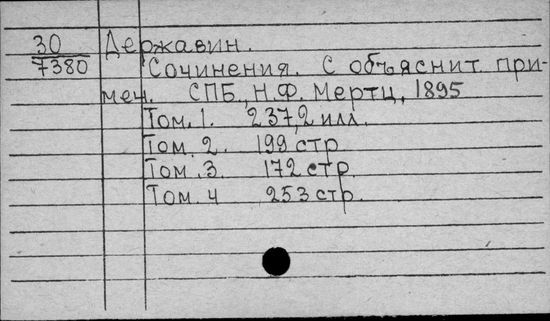 30 Державин.
7380 Сочинения. С объяснит. при-
меч. СПБ., Н.Ф. Мертц, 1895
Том. 1. 237, 2 илл.
Том. 2. 199 стр
Том. 3. 172 стр.
Том. 4 253 стр.